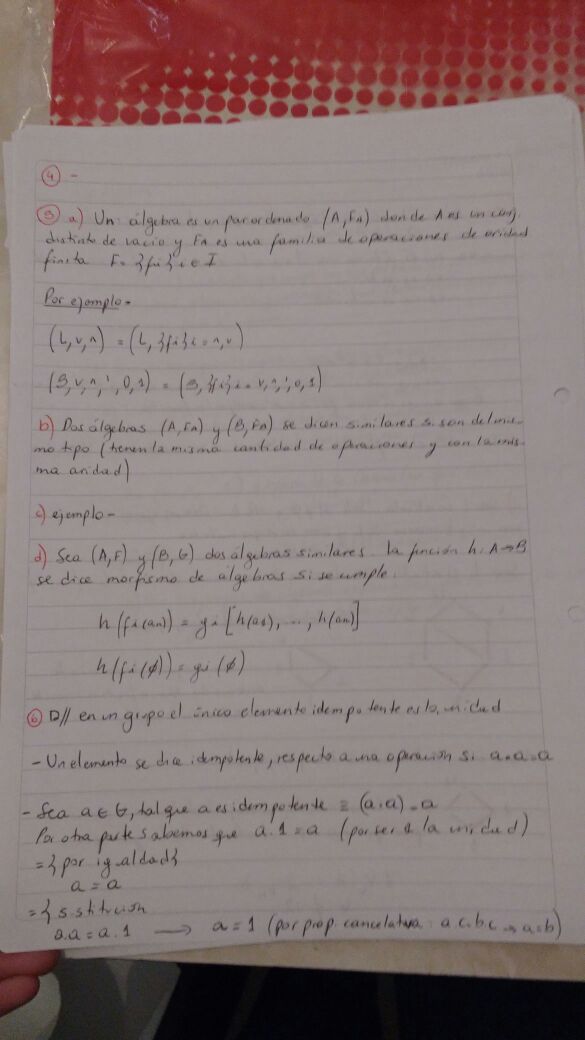 ④ -
⑤ a) Un álgebra es un par ordenado (A, FA) donde A es un conj.
distinto de vacío y FA es una familia de operaciones de aridad
finita F= {fi} i ∈ I
Por ejemplo-
(L, v, ^) = (L, {fi} i = ^, v)
(B, v, ^, ', 0, 1) = (B, {fi} i = v, ^, ', 0, 1)
b) Dos álgebras (A, FA) y (B, FA) se dicen similares si son del mis-
mo tipo (tienen la misma cantidad de operaciones y con la mis-
ma aridad)
c) ejemplo-
d) Sea (A, F) y (B, G) dos álgebras similares la función h: A→B
se dice morfismo de álgebras si se cumple.
h(fi(an) = gi [h(a1), ..., h(an)]
h(fi(∅)) = gi(∅)
⑥ D// en un grupo el único elemento idempotente es la unidad
- Un elemento se dice idempotente, respecto a una operación si a.a=a
- Sea a ∈ G, tal que a es idempotente ≡ (a.a) = a
Por otra parte sabemos que a.1=a (por ser 1 la unidad)
= {por igualdad}
a = a
= {sustitución
a.a = a.1 → a = 1 (por prop. cancelativa: a.c=b.c → a=b)